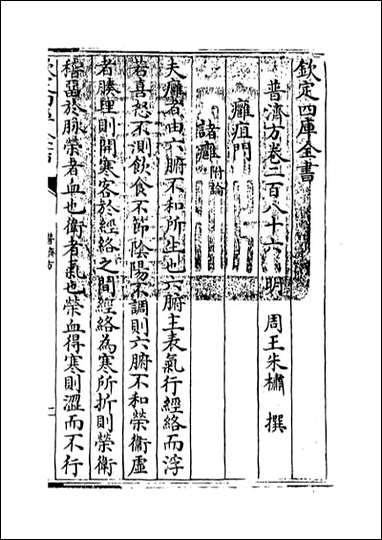 欽定四庫全書
普濟方卷二百八十六 明 周王朱橚 撰
癰疽門
諸癰 附論
夫癰者由六腑不和所生也六腑主表氣行經絡而浮
若喜怒不測飲食不節陰陽不調則六腑不和榮衛虛
者腠理則開寒客於經絡之間經絡為寒所折則榮衛
稽留於脉榮者血也衛者氣也榮血得寒則澀而不行
普濟方